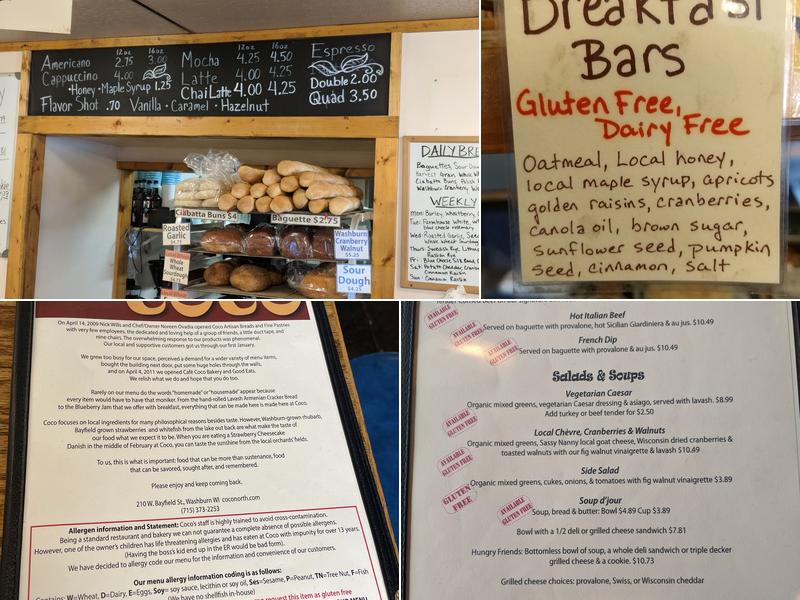 12oz 16oz 12oz 16oz Espresso
Americano 2.75 3.00 Mocha 4.25 4.50
Cappuccino 4.00 Latte 4.00 4.25 Double 2.00
•Honey •Maple Syrup 1.25 Chai Latte 4.00 4.25 Quad 3.50
Flavor Shot .70 Vanilla • Caramel • Hazelnut
Ciabatta Buns $4
Baguette $2.75
Roasted
Garlic
$4.75
Washburn
Cranberry
Walnut
$5.25
Whole
Wheat
Sourdough
Sour
Dough
$4.25
DAILY BRE
Baguettes, Sour Dou
Harvest Grain, Whole W
Ciabatta Buns, Polish
Washburn Cranberry W
WEEKLY
Breakfast
Bars
Gluten Free,
Dairy Free
Oatmeal, Local honey,
local maple syrup, apricots
golden raisins, cranberries,
canola oil, brown sugar,
sunflower seed, pumpkin
seed, cinnamon, salt
On April 14, 2009 Nick Wills and Chef/Owner Noreen Ovadia opened Coco Artisan Breads and Fine Pastries
with very few employees, the dedicated and loving help of a group of friends, a little duct tape, and
nine chairs. The overwhelming response to our products was phenomenal.
Our local and supportive customers got us through our first January.
We grew too busy for our space, perceived a demand for a wider variety of menu items,
bought the building next door, put some huge holes through the walls,
and on April 4, 2011 we opened Café Coco Bakery and Good Eats.
We relish what we do and hope that you do too.
Rarely on our menu do the words "homemade" or "housemade" appear because
every item would have to have that moniker. From the hand-rolled Lavash Armenian Cracker Bread
to the Blueberry Jam that we offer with breakfast, everything that can be made here is made here at Coco.
Coco focuses on local ingredients for many philosophical reasons besides taste. However, Washburn-grown rhubarb,
Bayfield grown strawberries and whitefish from the lake out back are what make the taste of
our food what we expect it to be. When you are eating a Strawberry Cheesecake
Danish in the middle of February at Coco, you can taste the sunshine from the local orchards' fields.
To us, this is what is important: food that can be more than sustenance, food
that can be savored, sought after, and remembered.
Please enjoy and keep coming back.
210 W. Bayfield St., Washburn WI coconorth.com
(715) 373-2253
Allergen information and Statement: Coco's staff is highly trained to avoid cross-contamination.
Being a standard restaurant and bakery we can not guarantee a complete absence of possible allergens.
However, one of the owner's children has life threatening allergies and has eaten at Coco with impunity for over 13 years.
(Having the boss's kid end up in the ER would be bad form).
We have decided to allergy code our menu for the information and convenience of our customers.
Our menu allergy information coding is as follows:
Contains: W=Wheat, D=Dairy, E=Eggs, Soy= soy sauce, lecithin or soy oil, Ses=Sesame, P=Peanut, TN=Tree Nut, F=Fish
(We have no shellfish in-house)
request this item as gluten free
AVAILABLE
GLUTEN FREE
Hot Italian Beef
Served on baguette with provalone, hot Sicilian Giardiniera & au jus. $10.49
AVAILABLE
GLUTEN FREE
French Dip
Served on baguette with provalone & au jus. $10.49
Salads & Soups
Vegetarian Caesar
Organic mixed greens, vegetarian Caesar dressing & asiago, served with lavash. $8.99
Add turkey or beef tender for $2.50
AVAILABLE
GLUTEN FREE
Local Chèvre, Cranberries & Walnuts
Organic mixed greens, Sassy Nanny local goat cheese, Wisconsin dried cranberries &
toasted walnuts with our fig walnut vinaigrette & lavash $10.49
AVAILABLE
GLUTEN FREE
Side Salad
Organic mixed greens, cukes, onions, & tomatoes with fig walnut vinaigrette $3.89
GLUTEN
FREE
AVAILABLE
GLUTEN FREE
Soup d'jour
Soup, bread & butter: Bowl $4.89 Cup $3.89
Bowl with a 1/2 deli or grilled cheese sandwich $7.81
Hungry Friends: Bottomless bowl of soup, a whole deli sandwich or triple decker
grilled cheese & a cookie. $10.73
Grilled cheese choices: provalone, Swiss, or Wisconsin cheddar